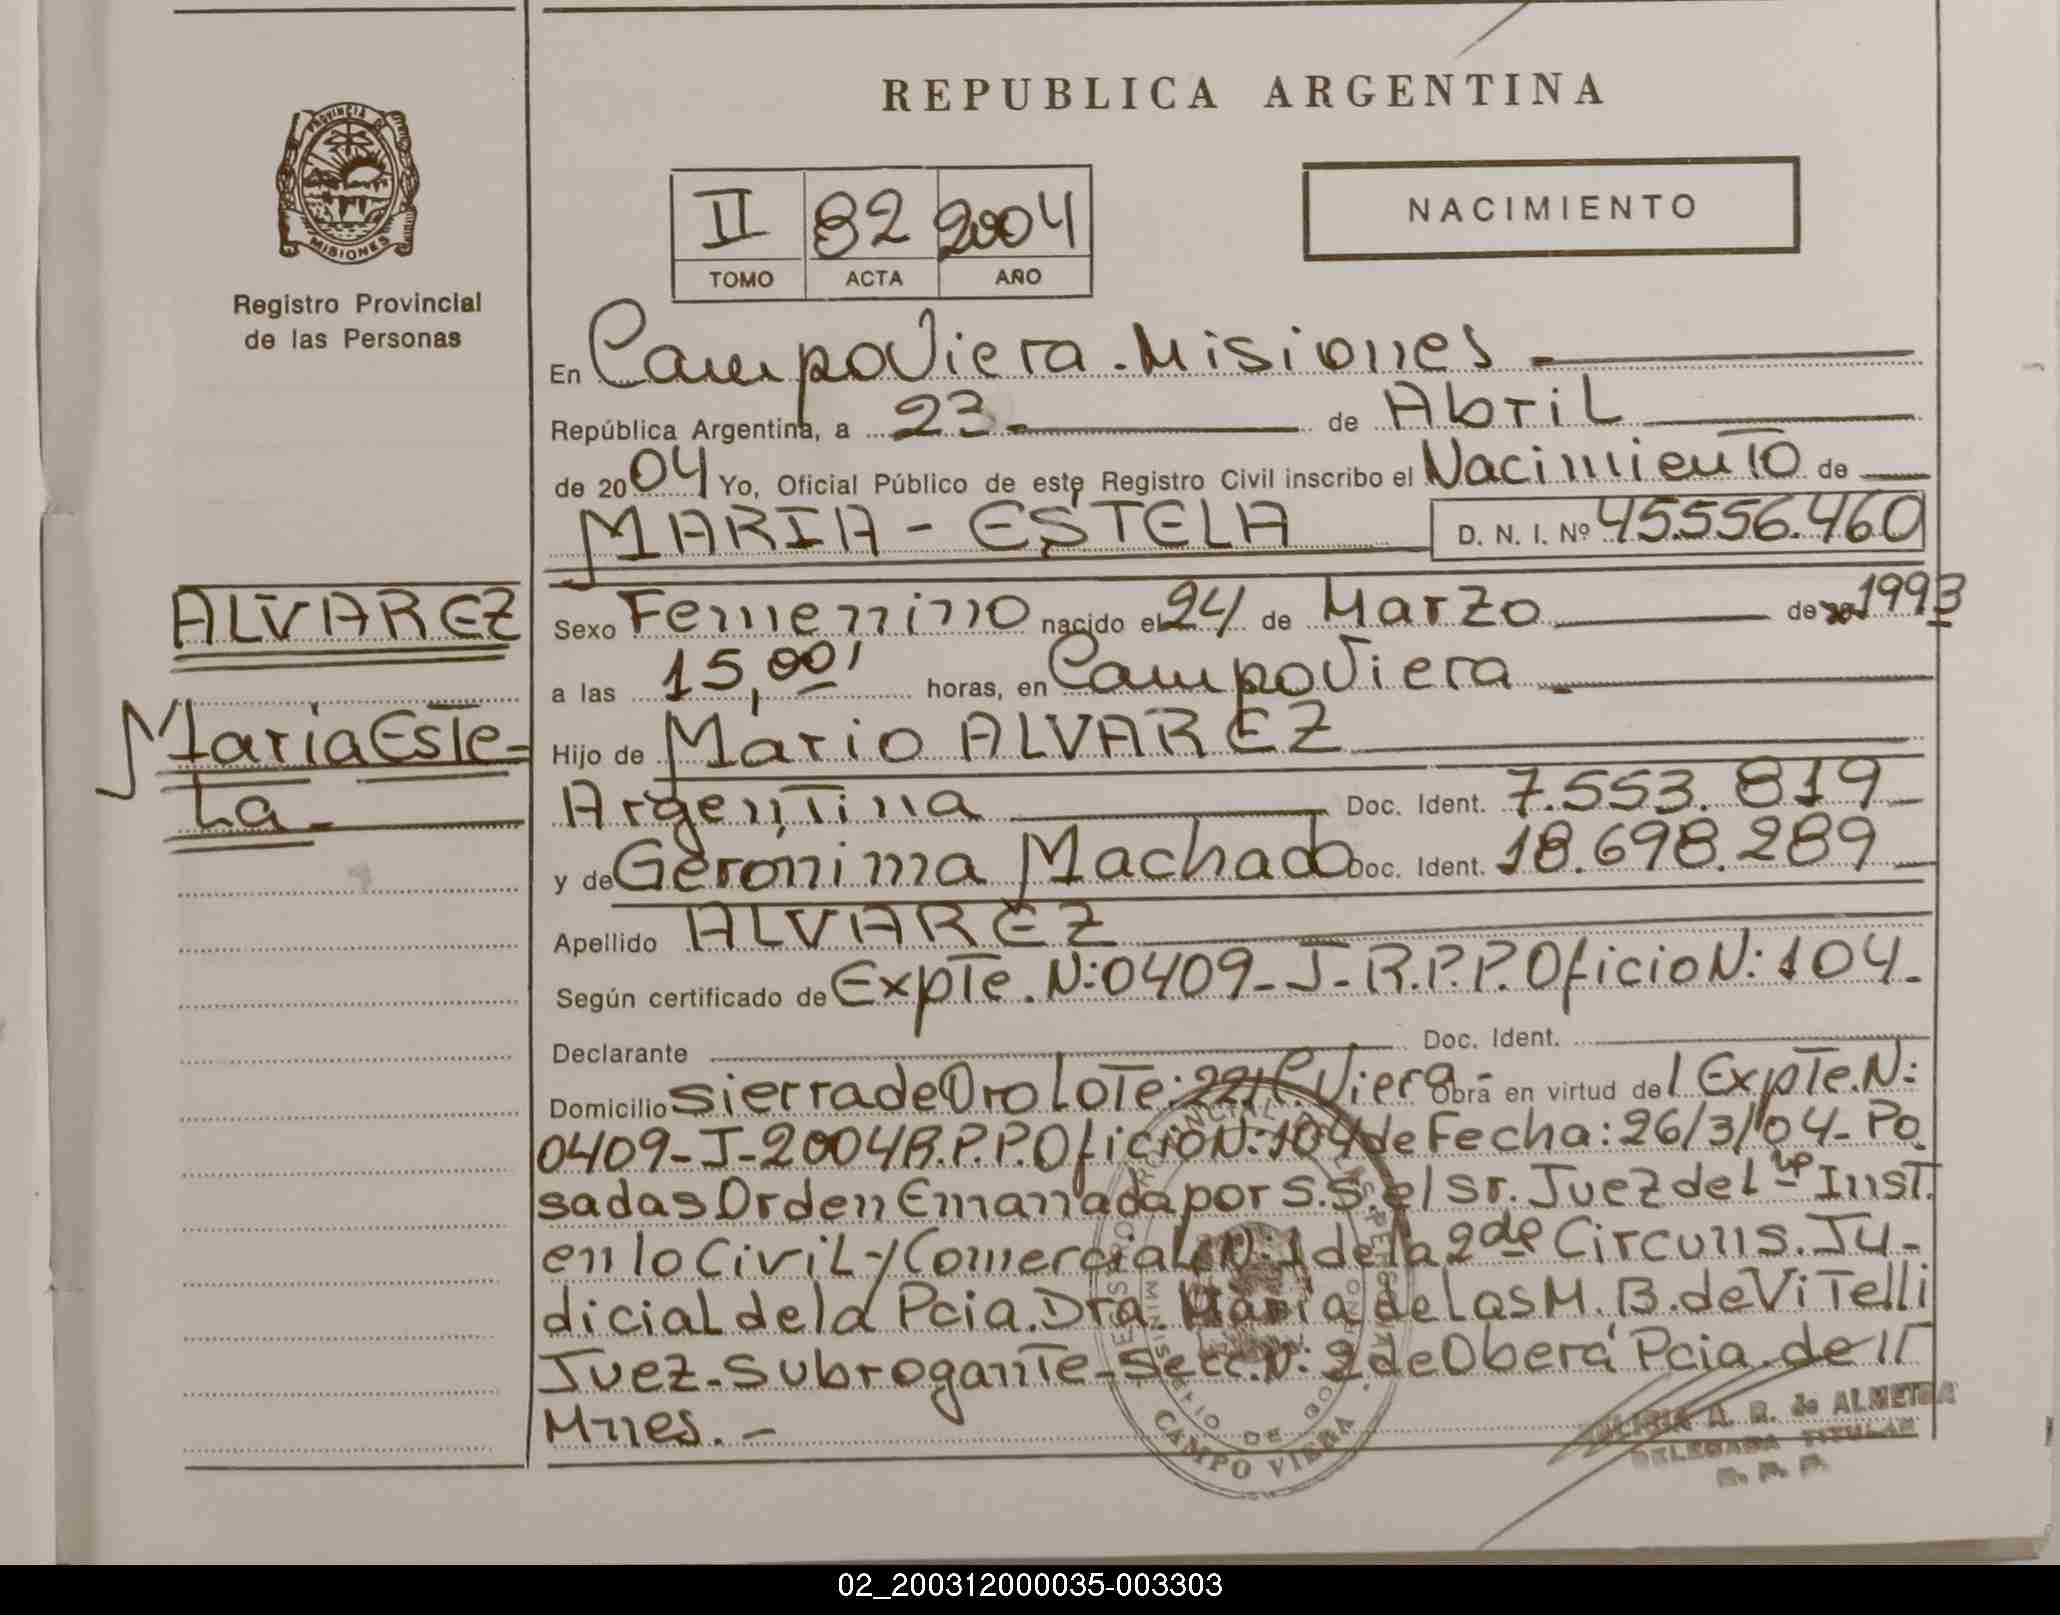 REPUBLICA ARGENTINA
PROVINCIA DE
MISIONES
Registro Provincial
de las Personas
II 82 2004
TOMO ACTA AÑO
NACIMIENTO
En Campo Viera. Misiones -
República Argentina, a 23.- de Abril
de 2004 Yo, Oficial Público de este Registro Civil inscribo el Nacimiento de
MARIA - ESTELA D. N. I. Nº 45.556.460
ALVAREZ
Maria Este=
La -
Sexo Femenino nacido el 24 de Marzo de 1993
a las 15,00' horas, en Campo Viera -
Hijo de Mario ALVAREZ
Argentina Doc. Ident. 7.553.819
y de Geronima Machado Doc. Ident. 18.698.289
Apellido ALVAREZ
Según certificado de Expte. N:0409-J-R.P.P. Oficio N: 104-
Declarante Doc. Ident.
Domicilio Sierra de Oro Lote: 221 C. Viera - Obra en virtud del Expte. N:
0409-J-2004 R.P.P. Oficio N: 104 de Fecha: 26/3/04- Po
sadas Orden Emanada por S.S. el Sr. Juez del Inst.
en lo Civil y Comercial N: 1 de la 2da Circuns. Ju-
dicial de la Pcia. Dra. Maria de Las M. B. de Vitelli
Juez-Subrogante-Secc. N: 2 de Oberá Pcia. de
Mnes. -
CAMPO VIERA
A. R. de ALMEIDA
DELEGADA TITULAR
R. P. P.
02_200312000035-003303